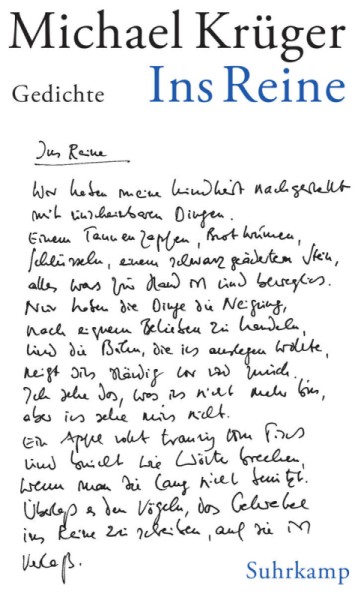 Michael Krüger
Gedichte Ins Reine
Ins Reine
Wir haben meine Kindheit nachgestellt
mit unscheinbaren Dingen.
Einem Tannenzapfen, Brotkrümen,
Schlüsseln, einem schwarz geäderten Stein,
alles was zur Hand ist und beweglich.
Nur haben die Dinge die Neigung,
nach eigenem Belieben zu handeln,
und die Bühne, die ich auslegen wollte,
neigt sich ständig vor und zurück.
Ich sehe das, was ich nicht mehr bin,
aber ich sehe mich nicht.
Ein Apfel rollt traurig vom Tisch
und bricht wie Wörter brechen,
wenn man sie lang nicht benützt.
Überlaß es den Vögeln, das Gekrakel
ins Reine zu schreiben, auf die ist
Verlaß.
Suhrkamp